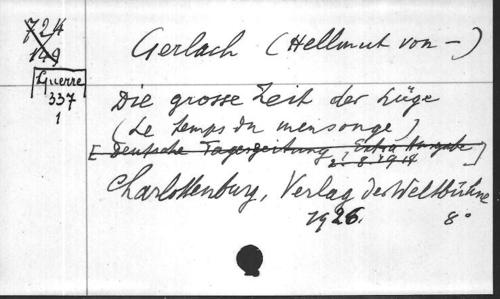 724
149
Guerre
337
1
Gerlach (Hellmut von —)
Die grosse Zeit der Lüge
(Le temps du mensonge)
[Deutsche Tageszeitung, Extra Ausgabe
2. 8. 1914]
Charlottenburg, Verlag der Weltbühne
1926. 8°